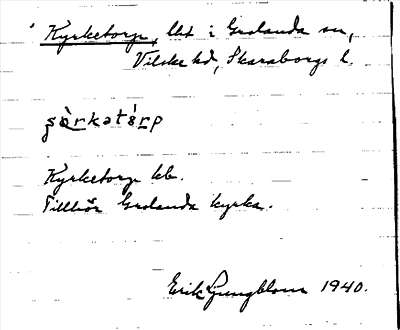 Kyrketorp, lht i Grolanda sn,
Vilske hd, Skaraborgs l.
Kyrketorp kb.
Tillhör Grolanda kyrka.
Erik Ljungblom 1940.